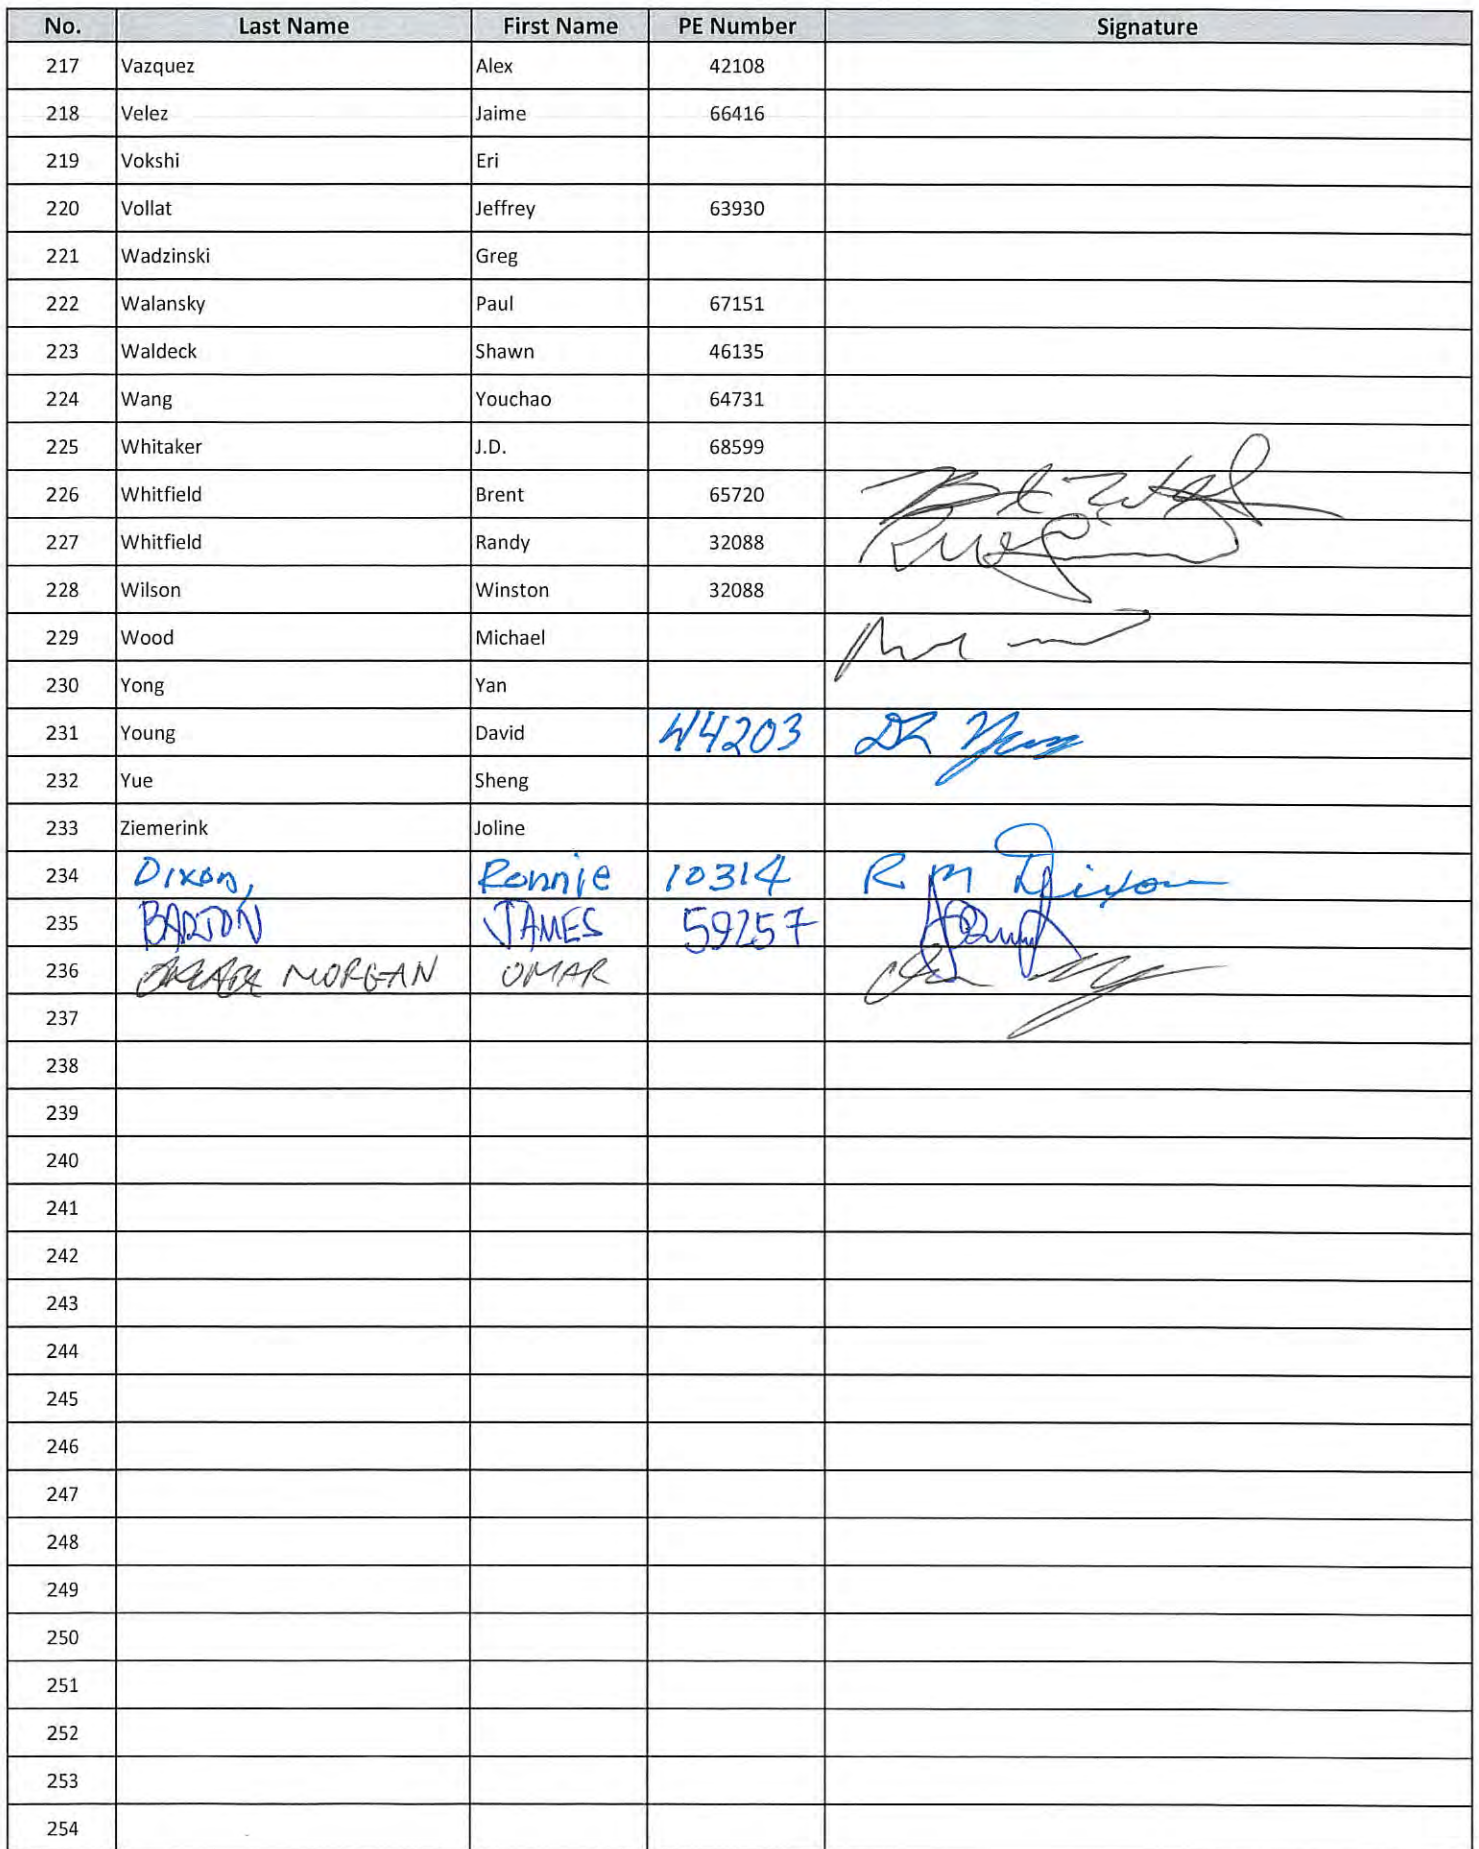 No. Last Name First Name PE Number Signature
217 Vazquez Alex 42108
218 Velez Jaime 66416
219 Vokshi Eri
220 Vollat Jeffrey 63930
221 Wadzinski Greg
222 Walansky Paul 67151
223 Waldeck Shawn 46135
224 Wang Youchao 64731
225 Whitaker J.D. 68599
226 Whitfield Brent 65720
227 Whitfield Randy 32088
228 Wilson Winston 32088
229 Wood Michael
230 Yong Yan
231 Young David 44203
232 Yue Sheng
233 Ziemerink Joline
234 Dixon, Ronnie 10314 R M Dixon
235 BARTON JAMES 59257
236 MORGAN OMAR
237
238
239
240
241
242
243
244
245
246
247
248
249
250
251
252
253
254